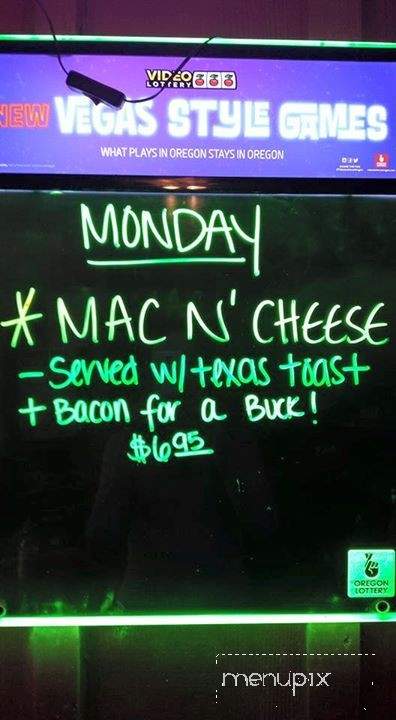 VIDEO
LOTTERY
NEW VEGAS STYLE GAMES
WHAT PLAYS IN OREGON STAYS IN OREGON
MONDAY
* MAC N' CHEESE
- Served w/ texas toast
+ Bacon for a Buck!
$6.95
OREGON
LOTTERY
menupix